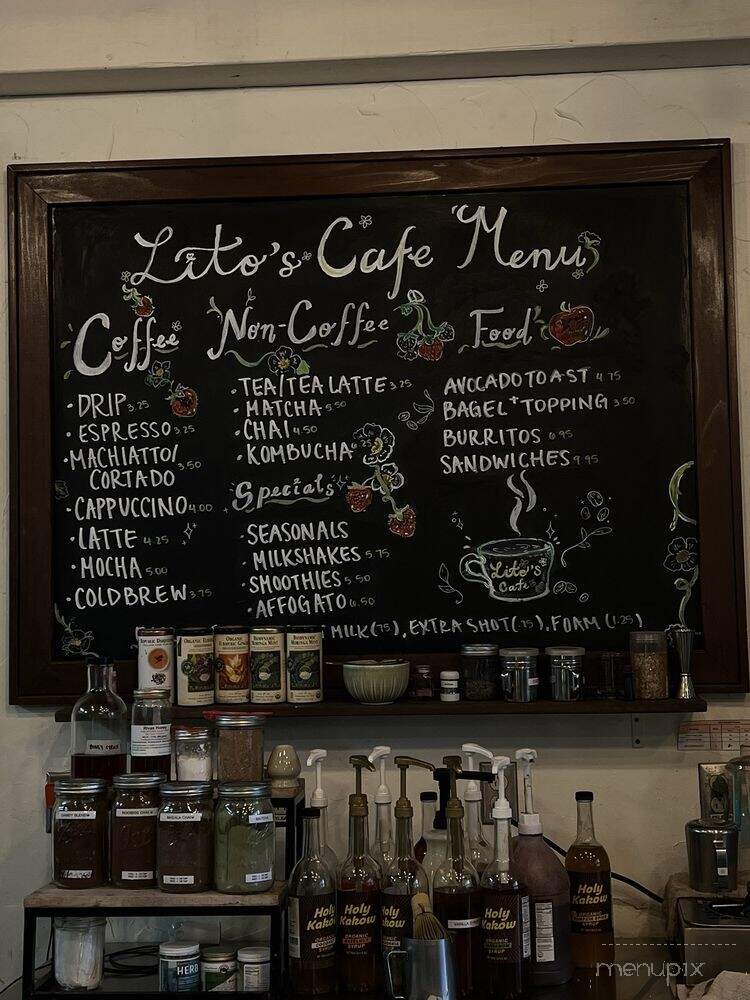 Lito's Cafe Menu
Coffee
· DRIP 3.25
· ESPRESSO 3.25
· MACHIATTO/
CORTADO 3.50
· CAPPUCCINO 4.00
· LATTE 4.25
· MOCHA 5.00
· COLDBREW 3.75
Non-Coffee
· TEA/TEA LATTE 3.25
· MATCHA 5.50
· CHAI 4.50
· KOMBUCHA
Specials
· SEASONALS
· MILKSHAKES 5.75
· SMOOTHIES 5.50
· AFFOGATO 6.50
Food
AVOCADO TOAST 4.75
BAGEL + TOPPING 3.50
BURRITOS 6.95
SANDWICHES 9.95
Lito's
Cafe
MILK (.75), EXTRA SHOT (.75), FOAM (1.25)
Holy
Kakow
ORGANIC
Holy
Kakow
ORGANIC
Holy
Kakow
Holy
Kakow
ORGANIC
Holy
Kakow
ORGANIC
HERB
menupix